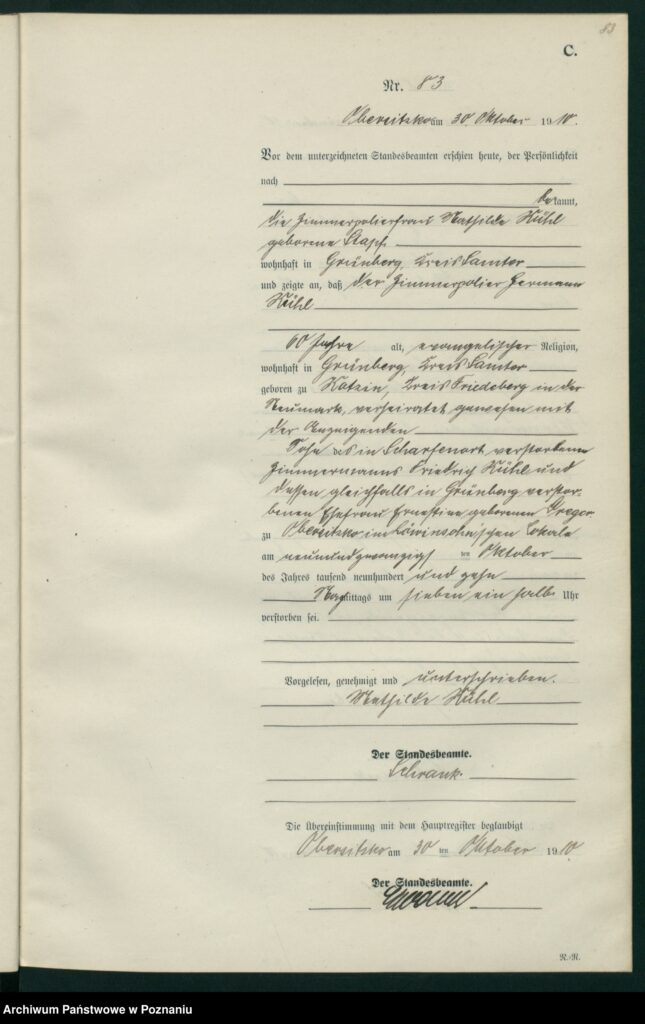 83
C.
Nr. 83
Obersitzko am 30 Oktober 1910.
Vor dem unterzeichneten Standesbeamten erschien heute, der Persönlichkeit
nach
bekannt,
die Zimmerpolierfrau Mathilde Kühl
geborene Stapf
wohnhaft in Grünberg, Kreis Samter
und zeigte an, daß der Zimmerpolier Hermann
Kühl
60 Jahre alt, evangelischer Religion,
wohnhaft in Grünberg, Kreis Samter
geboren zu Kreis Friedeberg in der
Neumark, verheiratet gewesen mit
der Anzeigenden
Sohn des in Scharfenort verstorbenen
Zimmermanns Friedrich Kühl und
dessen gleichfalls in Grünberg verstor-
benen Ehefrau Ernestine geborenen Gregor
zu Obersitzko im Löwinsohn'schen Lokale
am neunundzwanzigsten Oktober
des Jahres tausend neunhundert und zehn
Nachmittags um sieben ein halb Uhr
verstorben sei.
Vorgelesen, genehmigt und unterschrieben.
Mathilde Kühl
Der Standesbeamte.
Schrank.
Die Übereinstimmung mit dem Hauptregister beglaubigt
Obersitzko am 30 ten Oktober 1910
Der Standesbeamte.
R./R.
Archiwum Państwowe w Poznaniu